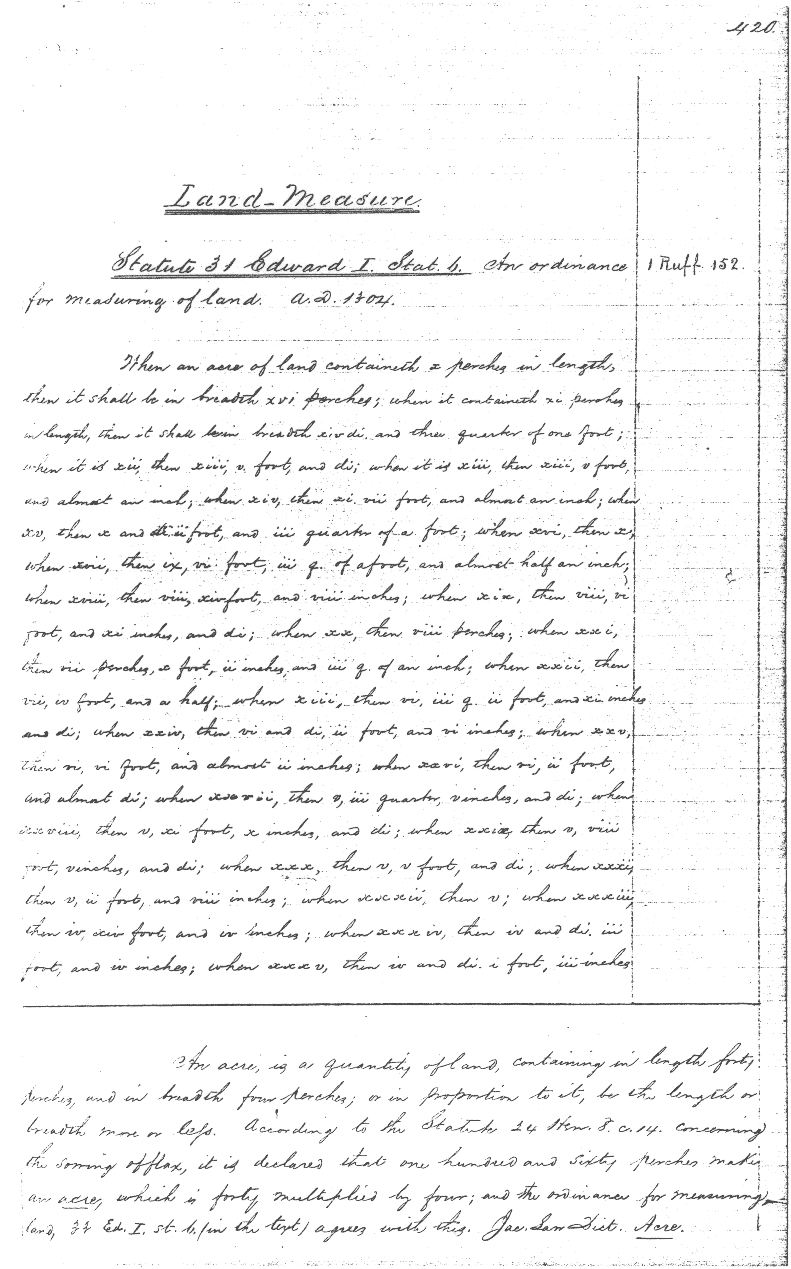 420.
Land-Measure.
Statute 31 Edward I. Stat. 6. An ordinance 1 Ruff. 152.
for measuring of land. A.D. 1304.
When an acre of land containeth x perches in length,
then it shall be in breadth xvi perches; when it containeth xi perches
in length, then it shall be in breadth xiv di. and three quarter of one foot;
when it is xii, then xiii, v. foot, and di; when it is xiii, then xiii, v foot,
and almost an inch; when xiv, then xi. vii foot, and almost an inch; when
xv, then x and di. ii foot, and iii quarter of a foot; when xvi, then x;
when xvii, then ix, vi. foot, iii q. of a foot, and almost half an inch;
when xviii, then viii, xiv foot, and viii inches; when xix, then viii, vi
foot, and xi inches, and di; when xx, then viii perches; when xxi,
then vii perches, x foot, ii inches, and iii q. of an inch; when xxii, then
vii, iv foot, and a half; when xiii, then vi, iii q. ii foot, and xi inches
and di; when xxiv, then vi and di, ii foot, and vi inches; when xxv,
then vi, vi foot, and almost ii inches; when xxvi, then vi, ii foot,
and almost di; when xxvii, then v, iii quarter, v inches, and di; when
xxviii, then v, xi foot, x inches, and di; when xxix, then v, viii
foot, v inches, and di; when xxx, then v, v foot, and di; when xxxi,
then v, ii foot, and viii inches; when xxxii, then v; when xxxiii,
then iv, xiv foot, and iv inches; when xxxiv, then iv and di. iii
foot, and iv inches; when xxxv, then iv and di. i foot, iii inches
An acre, is a quantity of land, containing in length forty
perches, and in breadth four perches; or in proportion to it, be the length or
breadth more or less. According to the Statute 24 Hen. 8. c. 14. concerning
the sowing of flax, it is declared that one hundred and sixty perches make
an acre, which is forty multiplied by four; and the ordinance for measuring
land, Ed. I. st. 6. (in the text) agrees with this. Jac. Law Dict. Acre.